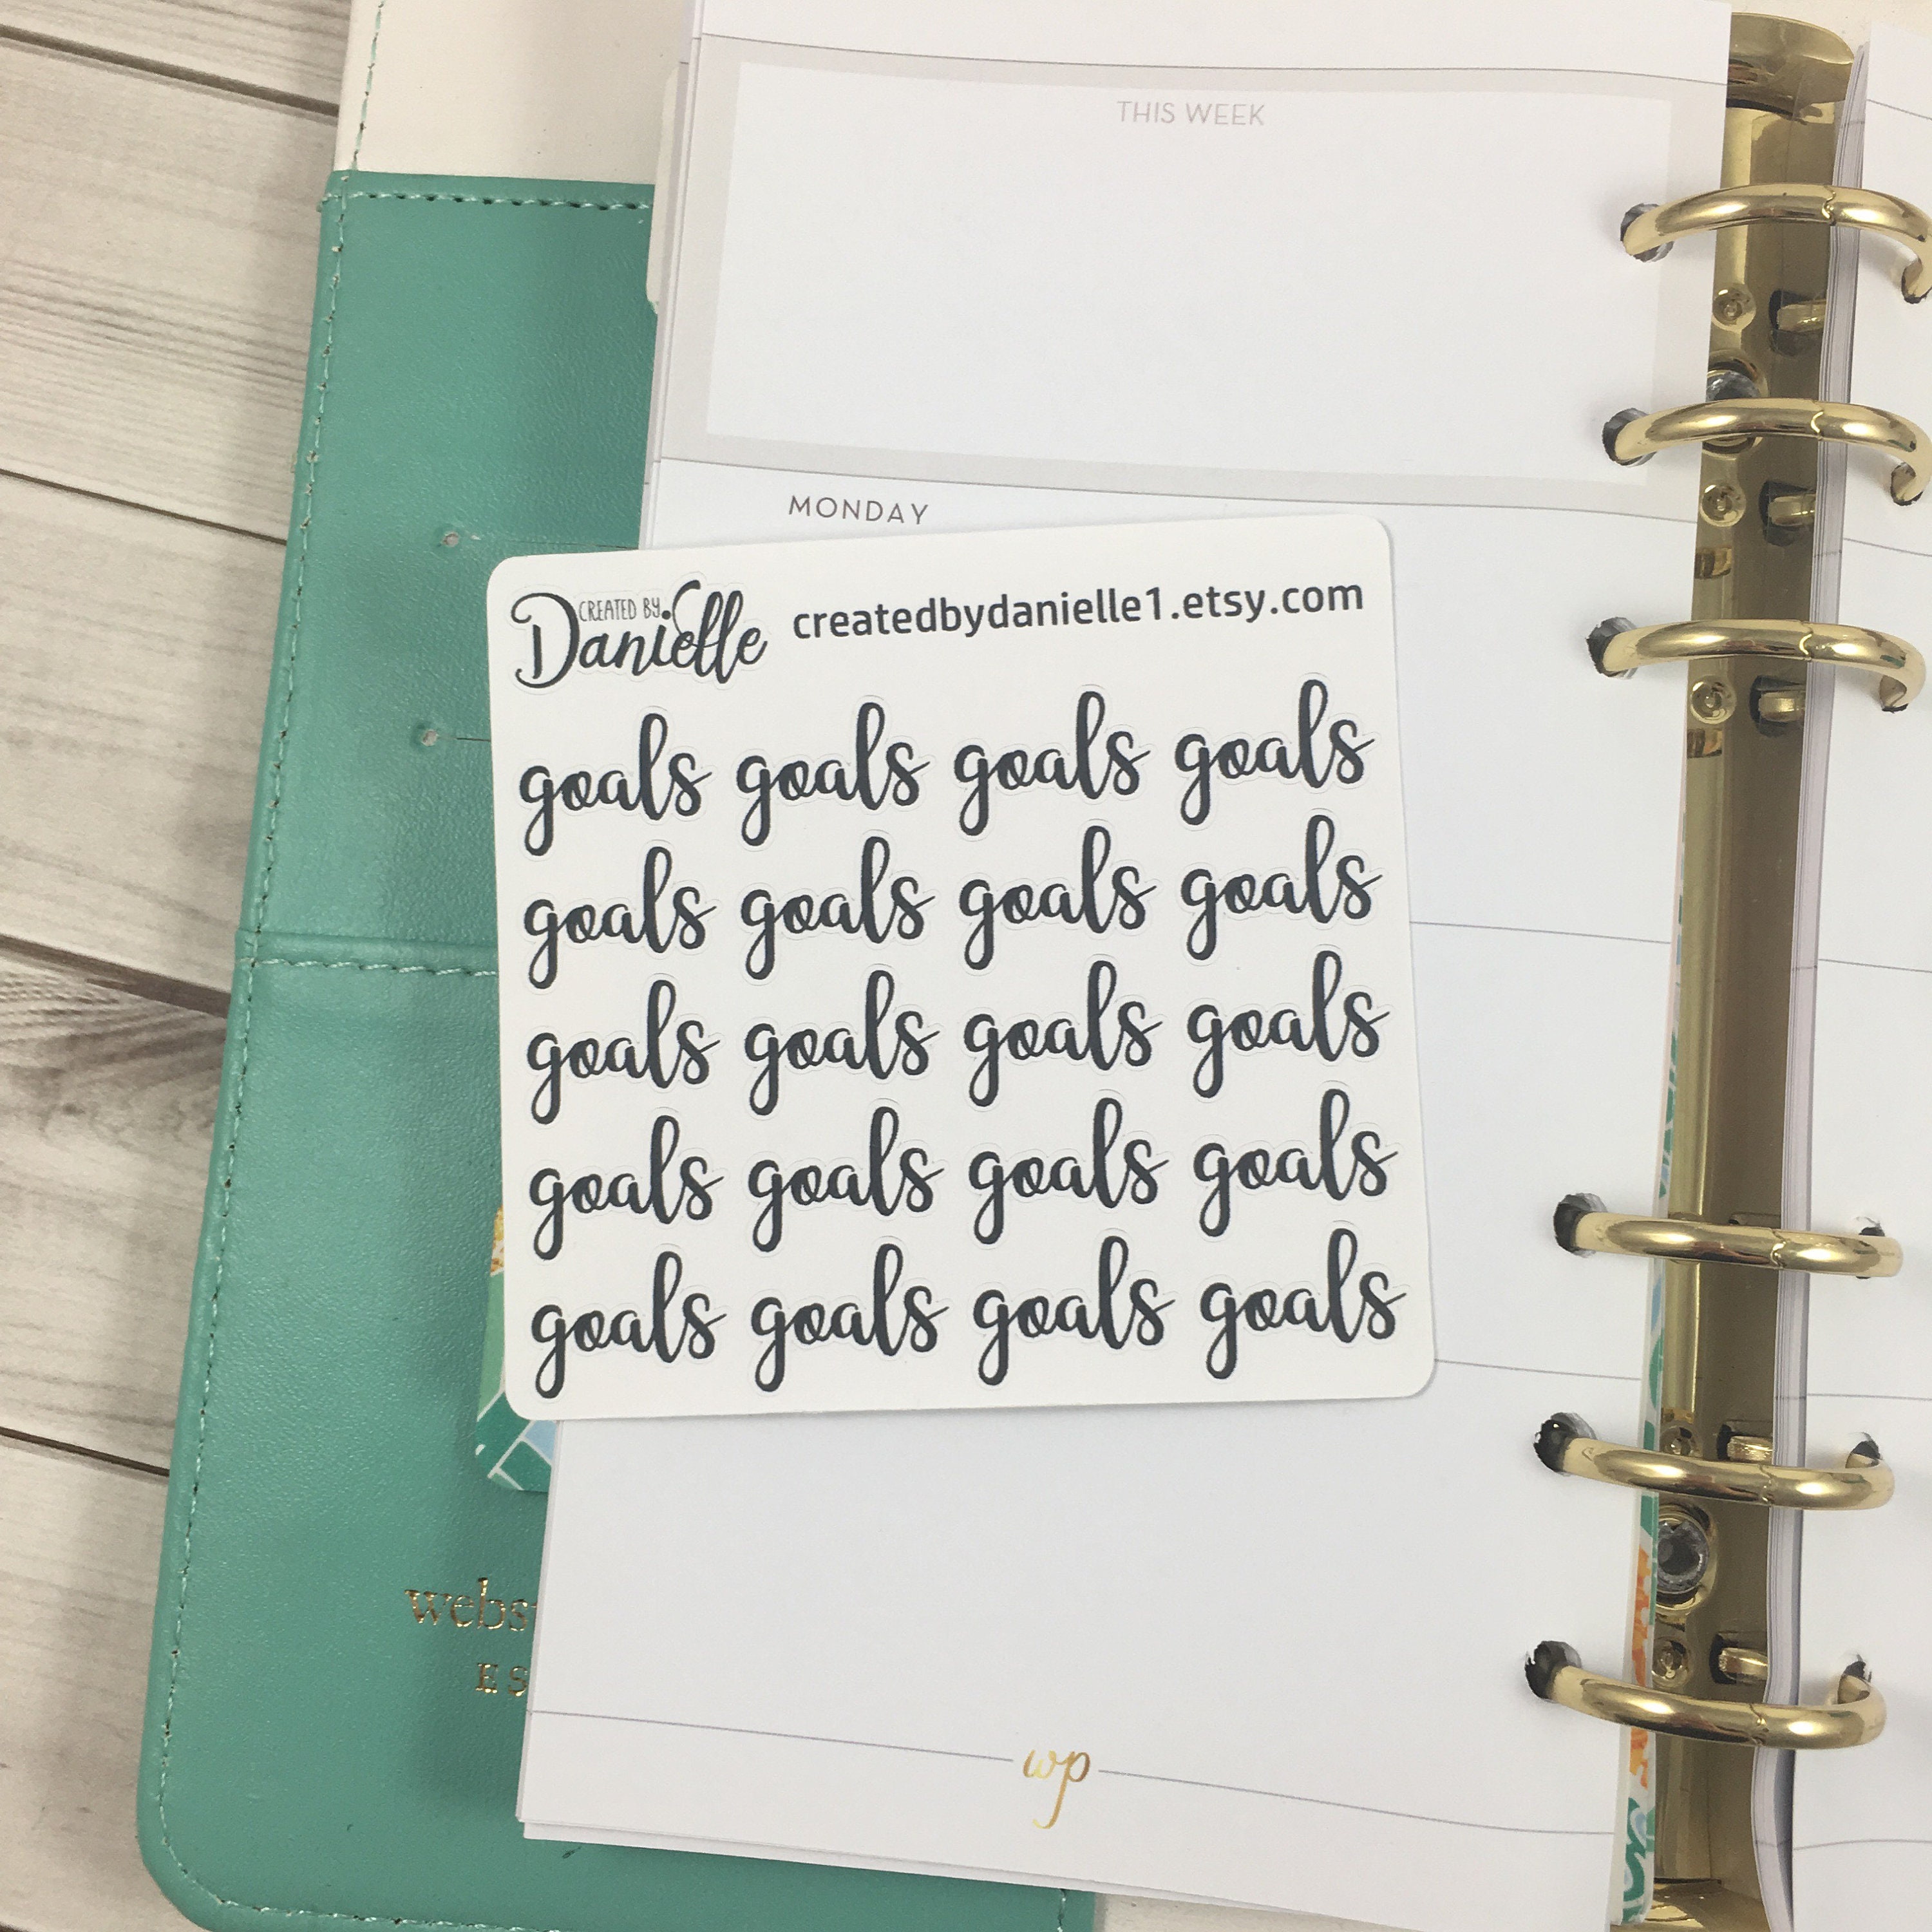 THIS WEEK
MONDAY
CREATED BY
Danielle
createdbydanielle1.etsy.com
goals goals goals goals
goals goals goals goals
goals goals goals goals
goals goals goals goals
goals goals goals goals
wp